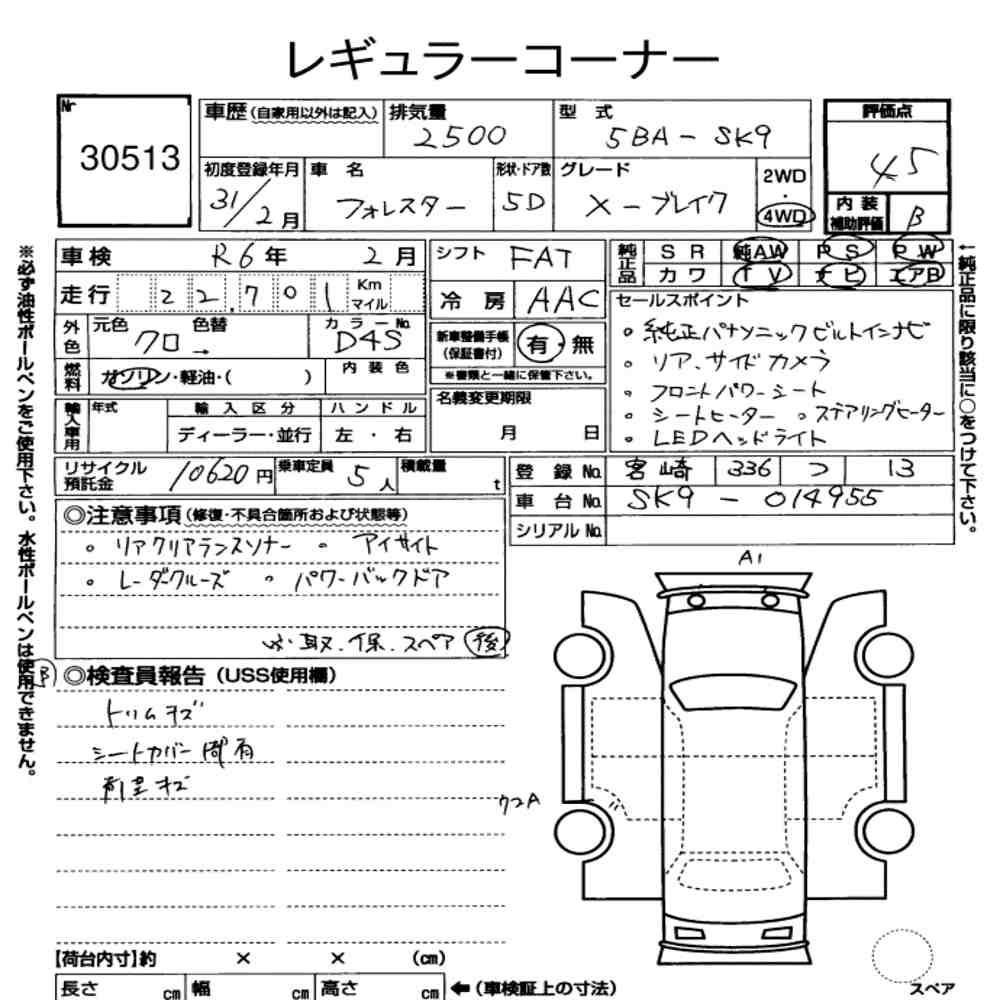 レギュラーコーナー
Nr
30513
車歴 (自家用以外は記入)
排気量
2500
型 式
5BA - SK9
評価点
45
初度登録年月
31/2月
車 名
フォレスター
形状・ドア数
5D
グレード
X-ブレイク
2WD
・
4WD
内装
補助評価
B
車検
R6年 2月
シフト
FAT
純正品
SR
純AW
PS
PW
カワ
TV
ナビ
エアB
走行
22,701
Km
マイル
冷房
AAC
セールスポイント
○ 純正パナソニックビルトインナビ
○ リア、サイドカメラ
○ フロントパワーシート
○ シートヒーター ○ ステアリングヒーター
○ LEDヘッドライト
外色
元色
クロ→
色替
カラーNo.
D4S
新車整備手帳
(保証書付)
有・無
※書類と一緒に保管下さい。
燃料
ガソリン・軽油・( )
内装色
名義変更期限
月 日
輸入車用
年式
輸入区分
ハンドル
ディーラー・並行
左・右
リサイクル
預託金
10620円
乗車定員
5人
積載量
t
登録No.
宮崎 336 つ 13
車台No.
SK9 - 014955
シリアルNo.
◎注意事項 (修復・不具合箇所および状態等)
○ リアクリアランスソナー ○ アイサイト
○ レーダクルーズ ○ パワーバックドア
取.保.スペア 後
B
◎検査員報告 (USS使用欄)
トリムキズ
シートカバー
キズ
A1
クコA
【荷台内寸】約 × × (cm)
長さ cm 幅 cm 高さ cm
←(車検証上の寸法)
スペア
※必ず油性ボールペンをご使用下さい。水性ボールペンは使用できません。
←純正品に限り該当に○をつけて下さい。